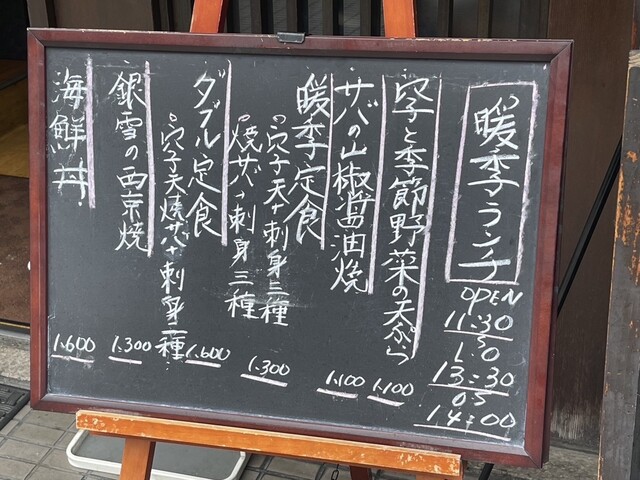 暖季ランチ
OPEN
11:30
L.O
13:30
OS
14:00
穴子と季節野菜の天ぷら
1.100
サバの山椒醤油焼
1.100
暖季定食
・穴子天+刺身三種
・焼サバ+刺身三種
1.300
ダブル定食
・穴子天+焼サバ+刺身二種
1.600
銀雪の西京焼
1.300
海鮮丼
1.600